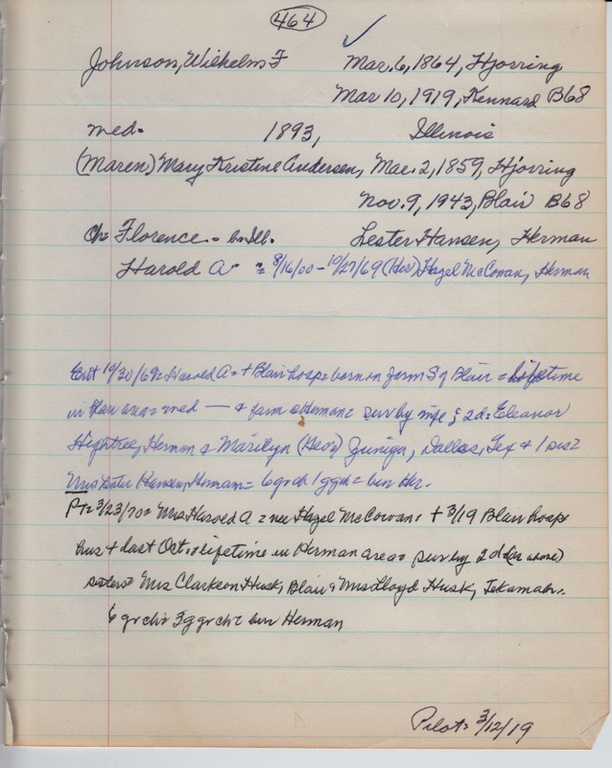 464
Johnson, Wilhelms F ✓ Mar. 6, 1864, Hjorring
Mar 10, 1919, Kennard B68
med. 1893, Illinois
(Maren) Mary Kristine Andersen, Mar. 2, 1859, Hjorring
Nov. 9, 1943, Blair B68
Ch: Florence. - b. Ill. Lester Hansen, Herman
Harold A = 8/16/00 - 10/27/69 (Her) Hazel McCowan, Herman
Ent 10/30/69 = Harold A = + Blair hosp = born on farm S of Blair = lifetime
in area = med — + farm Herman = surv by wife & 2 d = Eleanor
Hightree, Herman & Marilyn (Geo) Juniga, Dallas, Tex + 1 sis =
Mrs Lester Hansen, Herman = 6 grch 1 ggch = bur Her.
PT = 3/23/70 = Mrs Harold A = nee Hazel McCowan = + 3/19 Blair hosp
hus + last Oct. = lifetime in Herman area = surv by 2 d (as above)
sisters = Mrs Clarkson Husk, Blair & Mrs Lloyd Husk, Tekamah.
6 grch = 3 ggrch = bur Herman
Pilot = 3/12/19